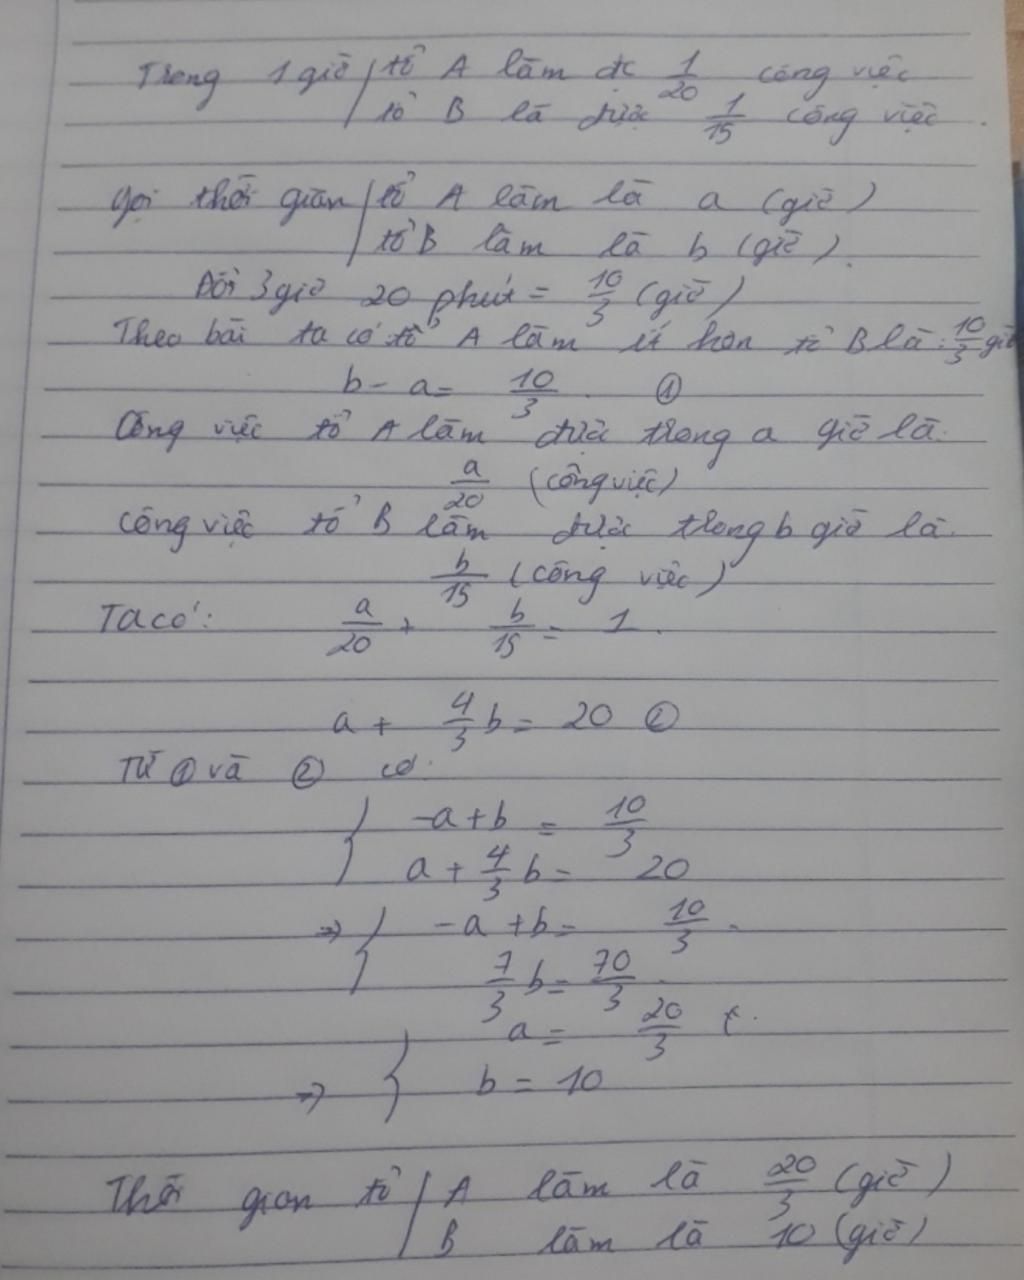 Trong 1 giờ | tổ A làm đc 1/20 công việc
tổ B là được 1/15 công việc.
Gọi thời gian | tổ A làm là a (giờ)
tổ B làm là b (giờ).
Đổi 3 giờ 20 phút = 10/3 (giờ)
Theo bài ta có tổ A làm ít hơn tổ B là: 10/3 giờ
b - a = 10/3. ①
Công việc tổ A làm được trong a giờ là.
a/20 (công việc)
công việc tổ B làm được trong b giờ là.
b/15 (công việc)
Ta có: a/20 + b/15 = 1.
a + 4/3 b = 20 ②
Từ ① và ② có.
{ -a + b = 10/3
a + 4/3 b = 20
=> { -a + b = 10/3.
7/3 b = 70/3.
a = 20/3
=> { b = 10
Thời gian tổ | A làm là 20/3 (giờ)
B làm là 10 (giờ)